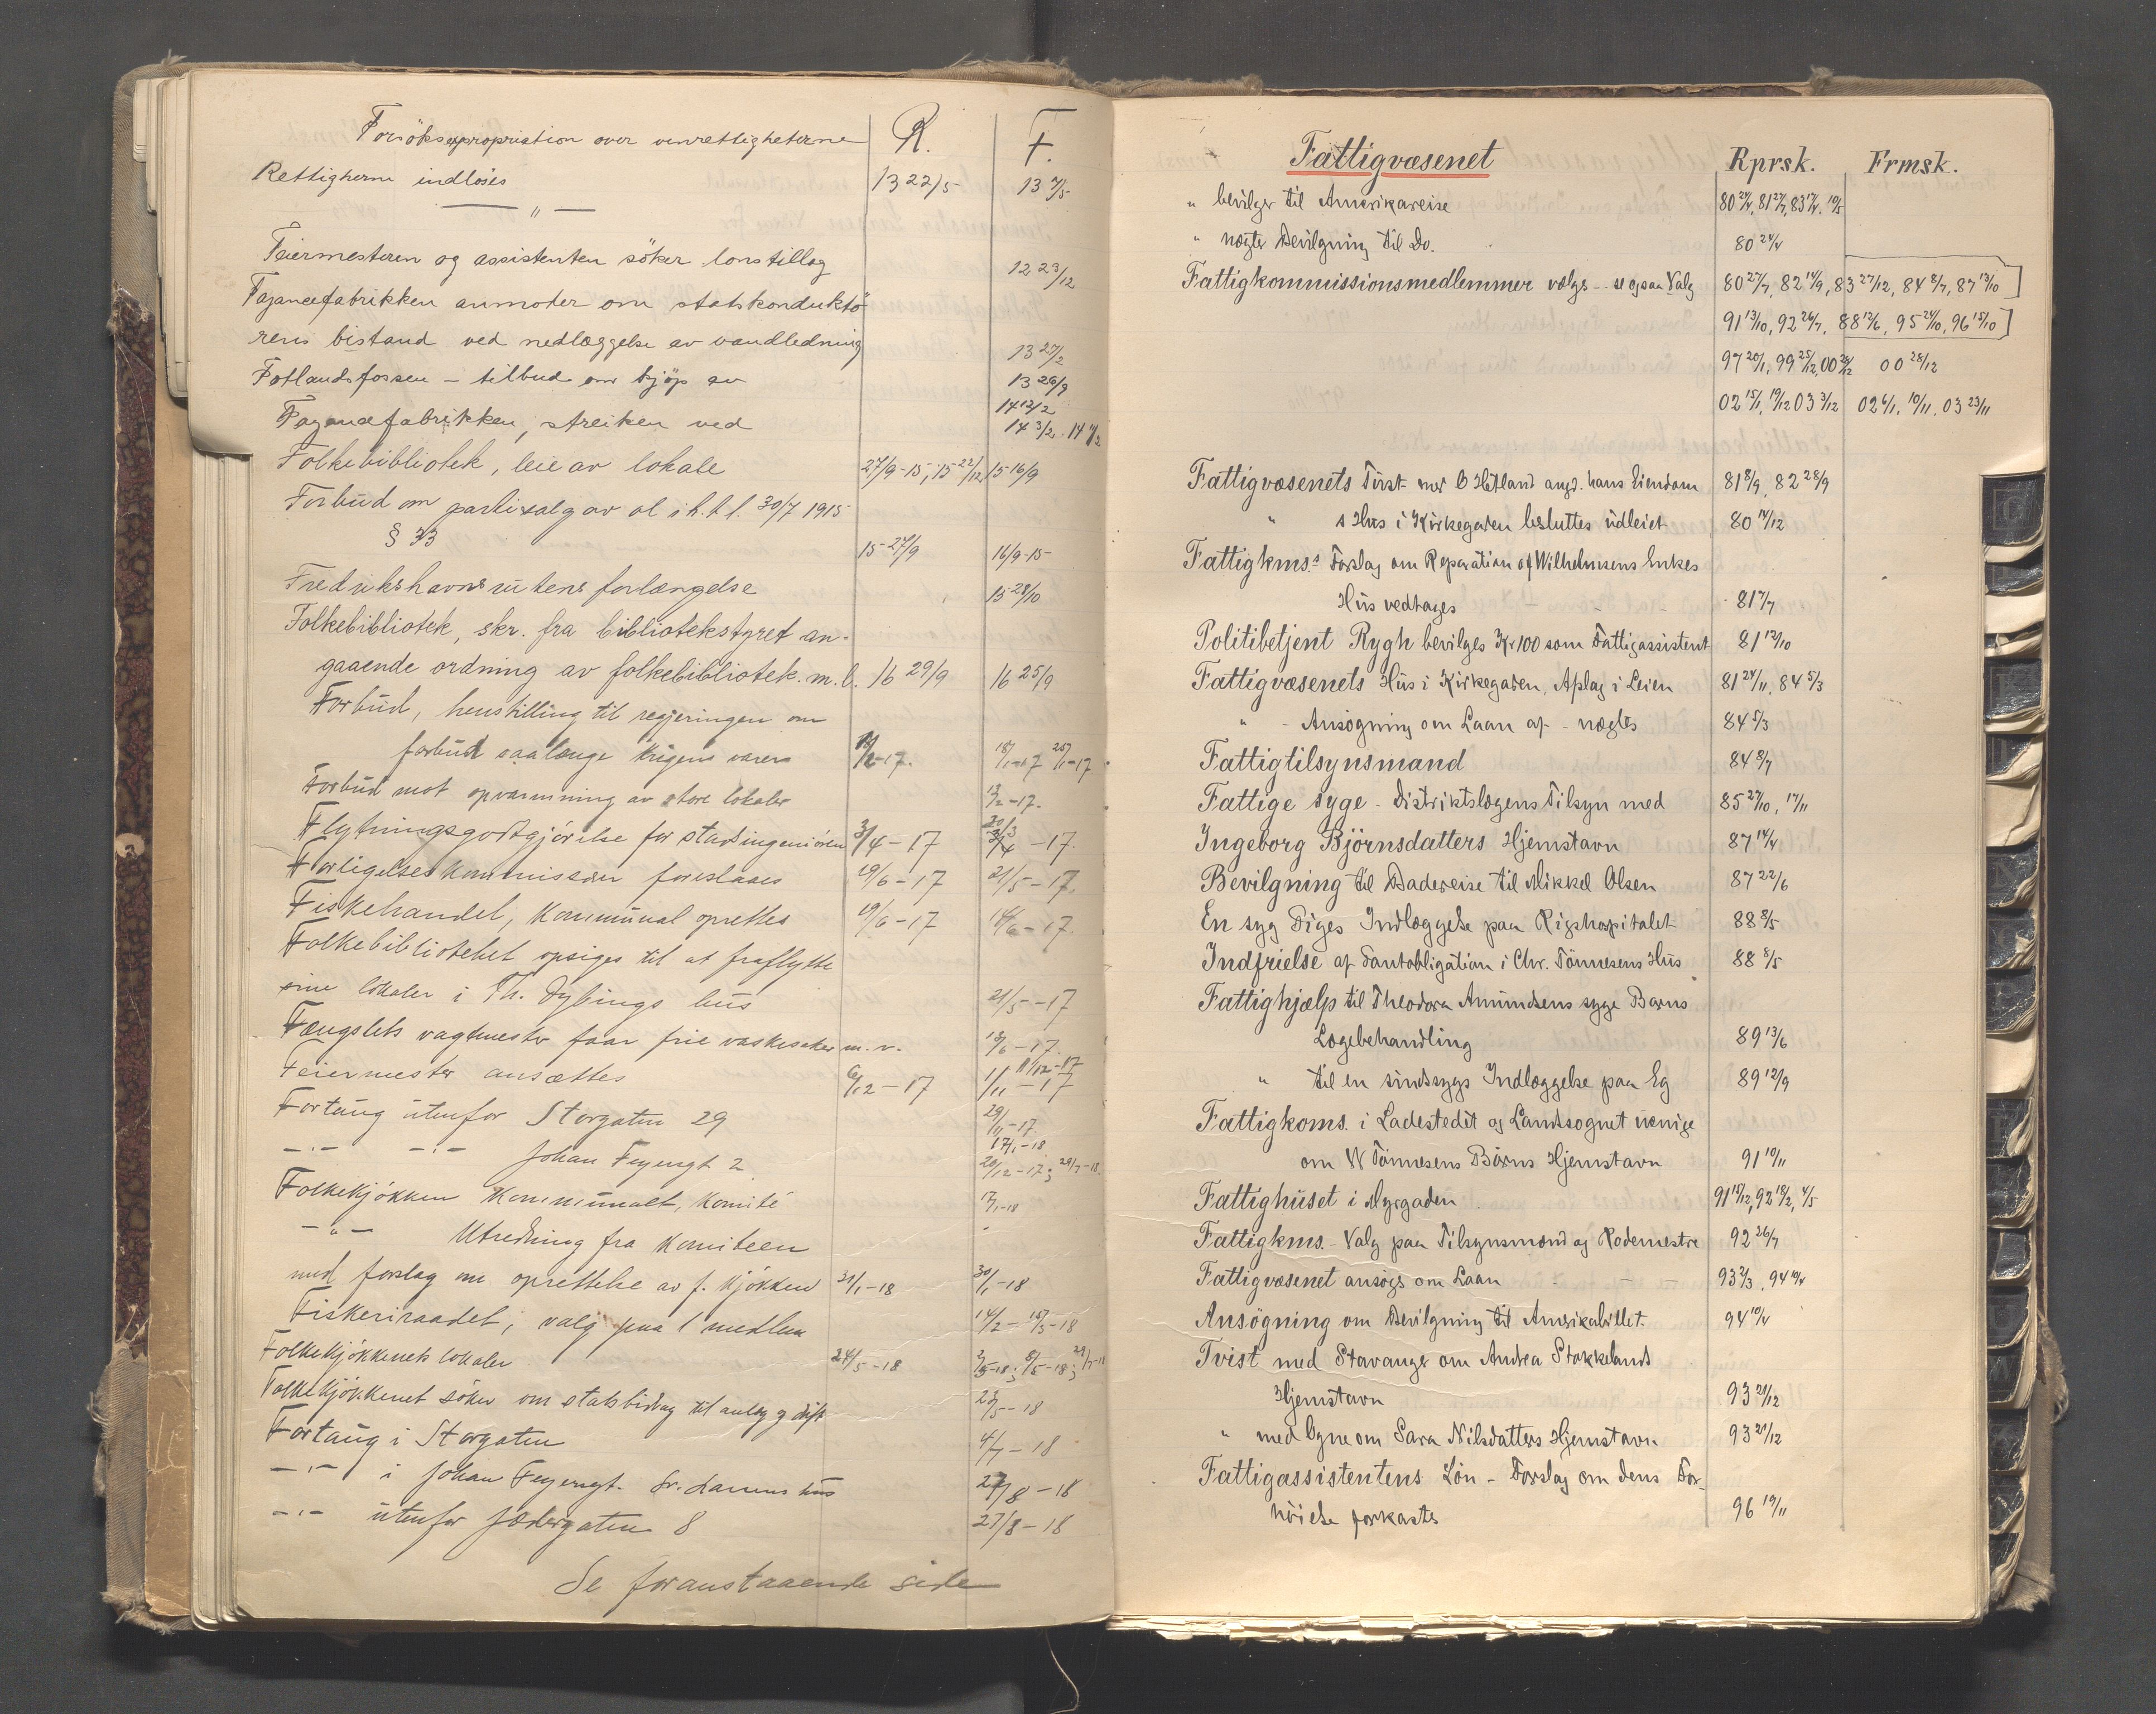 Forsöksexpropriation over vinrettigheterne R. F.
Rettigherne indloses 13 22/5 13 7/5
— " —
Feiermesteren og assistenten söker lonstillæg 12 23/12
Fajancefabrikken anmoder om statskonduktö
rens bistand ved nedlæggelse av vandledning 13 27/2
Fotlandsfossen – tilbud om kjöp av 13 26/9
14 12/2
Fajancefabrikken, streiken ved 14 3/2
Folkebibliotek, leie av lokale 27/9-15, 15 22/12 15 16/9
Forbud om partisalg av öl i h.t.l. 30/7 1915
§ 33 15 27/9 16/9-15
Fredrikshavnsrutens forlængelse 15 28/10
Folkebibliotek, skr. fra bibliotekstyret an-
gaaende ordning av folkebibliotek. m.v. 16 29/9 16 25/9
Forbud, henstilling til regjeringen om
forbud saalænge krigen varer 18/1-17 25/1-17
Forbud mot opvarmning av store lokaler
Flytningsgodtgjörelse for stadsingeniören 3/4-17 20/3 3/4-17.
Forligelseskommissær foreslaaes 19/6-17 21/5-17.
Fiskehandel, kommunal oprettes 19/6-17 14/6-17.
Folkebiblioteket opsiges til at fraflytte
sine lokaler i Th. Dybings hus 21/5-17
Fængslets vagtmester faar frie vaskesaker m.v. 13/6-17.
11/12-17
Feiermester ansættes 6/12-17 1/11-17
Fortaug utenfor Storgaten 29 29/11-17
17/1-18
—"— —"— Johan Feyersgt 2 20/12-17; 29/7-18.
Folkekjökken kommunalt, komité 17/1-18
—"— Utredning fra komiteen
med forslag om oprettelse av f. kjökken 31/1-18 30/1-18
Fiskeriraadet, valg paa 1 medlem 14/2-15/3-18
Folkekjökkenets lokaler 24/5-18 2/5-18; 8/5-18; 29/7-18
Folkekjökkenet söker om statsbidrag til anlæg og drift 23/5-18
Fortaug i Storgaten 4/7-18
—"— i Johan Feyersgt. 27/8-18
—"— utenfor Jædergaten 8 27/8-18
Se foranstaaende side
Fattigvæsenet Rprsk. Frmsk.
" bevilger til Amerikareise 80 24/4, 81 27/7, 83 17/4, 10/5
" nægter Bevilgning til Do. 80 24/4
Fattigkommissionsmedlemmer vælges – se ogsaa Valg 80 27/7, 82 14/9, 83 27/12, 84 8/7, 87 13/10
91 13/10, 92 26/7, 88 12/6, 95 24/10, 96 15/10
97 20/1, 99 25/12, 00 28/12 00 28/12
02 15/1, 19/12 03 3/12 02 6/1, 10/11. 03 23/11
Fattigvæsenets Türst mer O Hetland angd. hans Eiendom 81 8/9, 82 28/9
" s Hus i Kirkegaden besluttes udleiet 80 14/12
Fattigkms.s Forslag om Reparation af Wilhelmsens Enkes
Hus vedtages 81 7/7
Politibetjent Rygh bevilges Kr 100 som Fattigassistent 81 12/10
Fattigvæsenets Hus i Kirkegaden, Afslag i Leien 81 24/11, 84 5/3
" – Ansøgning om Laan af – nægtes 84 5/3
Fattigtilsynsmand 84 8/7
Fattige syge – Distriktslægens Tilsyn med 85 27/10, 17/11
Ingeborg Björnsdatters Hjemstavn 87 14/4
Bevilgning til Badereise til Mikkel Olsen 87 22/6
En syg Piges Indlæggelse paa Rigshospitalet 88 8/5
Indfrielse af Pantobligation i Chr. Tönnesens Hus 88 8/5
Fattighjælp til Theodora Amundsens syge Barns
Lægebehandling 89 13/6
" til en sindssygs Indlæggelse paa Eg 89 12/9
Fattigkoms. i Ladestedet og Landsognet uenige
om W Tönnesens Börns Hjemstavn 91 10/11
Fattighuset i Myrgaden 91 18/12, 92 18/2, 4/5
Fattigkms. – Valg paa Tilsynsmænd og Rodemestre 92 26/7
Fattigvæsenet ansøgs om Laan 93 2/3, 94 10/4
Ansögning om Bevilgning til Amerikabillet 94 10/4
Tvist med Stavanger om Andrea Stokkelands
Hjemstavn 93 21/12
" med Ogne om Sara Nilsdatters Hjemstavn 93 21/12
Fattigassistentens Lön – Forslag om dens For-
höielse forkastes 96 19/11